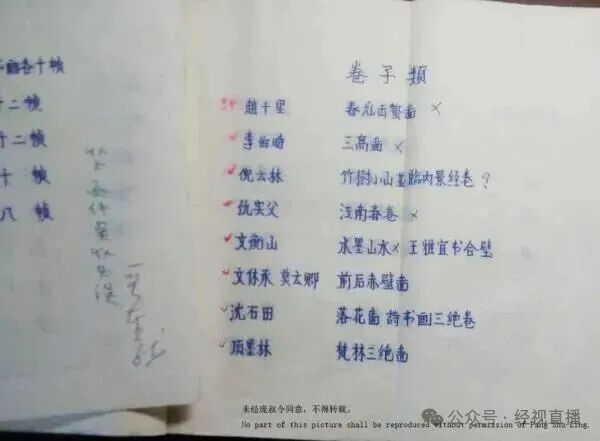 十二帧
十二帧
十 帧
八 帧
卷子類
趙千里 春龙出蟄啚 ×
李伯時 三高啚 ×
倪云林 竹樹小山並臨內景经卷 ?
仇实父 江南春卷 ×
文衡山 水墨山水× 王雅宜书合璧
文休承 莫云卿 前后赤壁啚
沈石田 落花啚 詩书画三绝卷
项墨林 梵林三绝啚
未经庞叔令同意，不得转载。
No part of this picture shall be reproduced without permission of Pang Shu-Ling.
公众号 · 经视直播